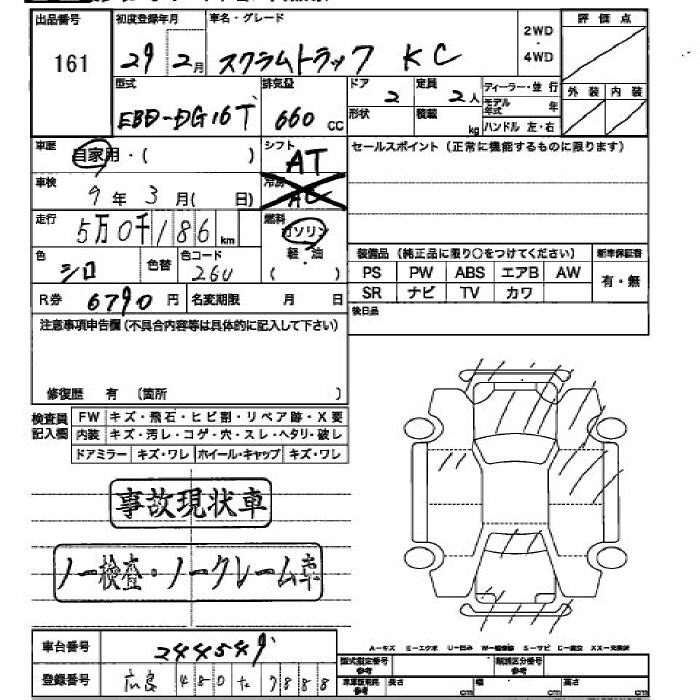 出品番号 初度登録年月 車名・グレード 評価点
161 29年2月 スクラムトラック KC 2WD・4WD
型式 排気量 ドア 定員 ディーラー・並行 外装 内装
EBD-DG16T 660 cc 2 2人 モデル年式 年
形状 積載 kg ハンドル 左・右
車歴 自家用・( ) シフト AT セールスポイント(正常に機能するものに限ります)
車検 9年3月( 日) 冷房 AC
走行 5万0千186km 燃料 ガソリン
色 シロ 色替 色コード 26U 軽・油 ( )
装備品(純正品に限り○をつけてください) 新車保証書
PS PW ABS エアB AW 有・無
SR ナビ TV カワ
R券 6790円 名変期限 月 日 後日品
注意事項申告欄(不具合内容等は具体的に記入して下さい)
修復歴 有 (箇所 )
検査員記入欄 FW キズ・飛石・ヒビ割・リペア跡・X要
内装 キズ・汚レ・コゲ・穴・スレ・ヘタリ・破レ
ドアミラー キズ・ワレ ホイール・キャップ キズ・ワレ
事故現状車
ノー検査・ノークレーム車
車台番号 244549
登録番号 広島 480 た 9888
A-キズ E-エクボ U-凹み W-補修跡 S-サビ C-腐食 XX-交換済
型式指定番号参考 類別区分番号参考
長さ cm 幅 cm 高さ cm